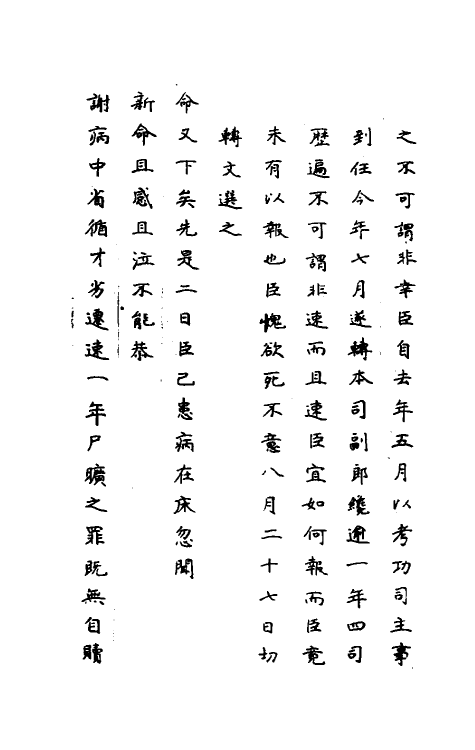 之不可謂非幸臣自去年五月以考功司主事
到任今年七月遂轉本司副郎纔逾一年四司
歷遍不可謂非速而且速臣宜如何報而臣竟
未有以報也臣愧欲死不意八月二十七日切
轉文選之
命又下矣先是二日臣已患病在床忽聞
新命且感且泣不能恭
謝病中省循才劣遷速一年尸曠之罪既無自贖